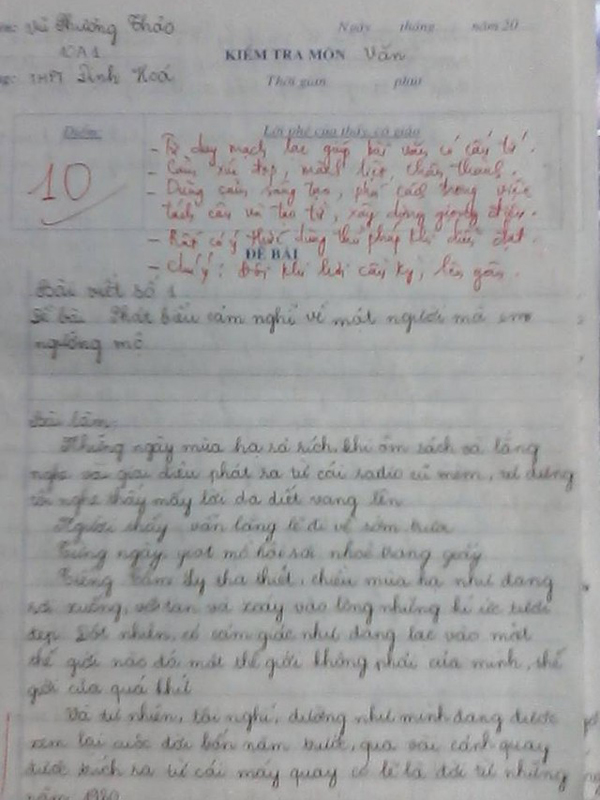 Vũ Phương Thảo
Ngày tháng năm 20
10A1
KIỂM TRA MÔN Văn
THPT Định Hoá
Thời gian phút
Điểm
Lời phê của thầy, cô giáo
10
- Tư duy mạch lạc giúp bài văn có cấu tứ.
- Cảm xúc đẹp, mãnh liệt, chân thành.
- Dùng câu sáng tạo, phá cách trong việc
tách câu và tạo từ, xây dựng giọng điệu.
- Rất có ý thức dùng thủ pháp khi diễn đạt.
ĐỀ BÀI
- Chú ý: Đôi khi hơi cầu kỳ, lên gân.
Bài viết số 1
Đề bài Phát biểu cảm nghĩ về một người mà em
ngưỡng mộ
Bài làm:
Những ngày mùa hạ rả rích, khi ôm sách và lắng
nghe vài giai điệu phát ra từ cái radio cũ mèm, tự dưng
tôi nghe thấy mấy lời da diết vang lên
Người thầy vẫn lặng lẽ đi về sớm trưa
Từng ngày giọt mồ hôi rơi nhoè trang giấy
Tiếng Cẩm Ly tha thiết, chiều mùa hạ như đang
rơi xuống, vỡ tan và xoáy vào lòng những kí ức tươi
đẹp. Đột nhiên, có cảm giác như đang lạc vào một
thế giới nào đó, một thế giới không phải của mình, thế
giới của quá khứ
Và tự nhiên, tôi nghĩ, dường như mình đang được
xem lại cuộc đời bốn năm trước, qua vài cảnh quay
được trích ra từ cái máy quay có lẽ là đời từ những
năm 1980